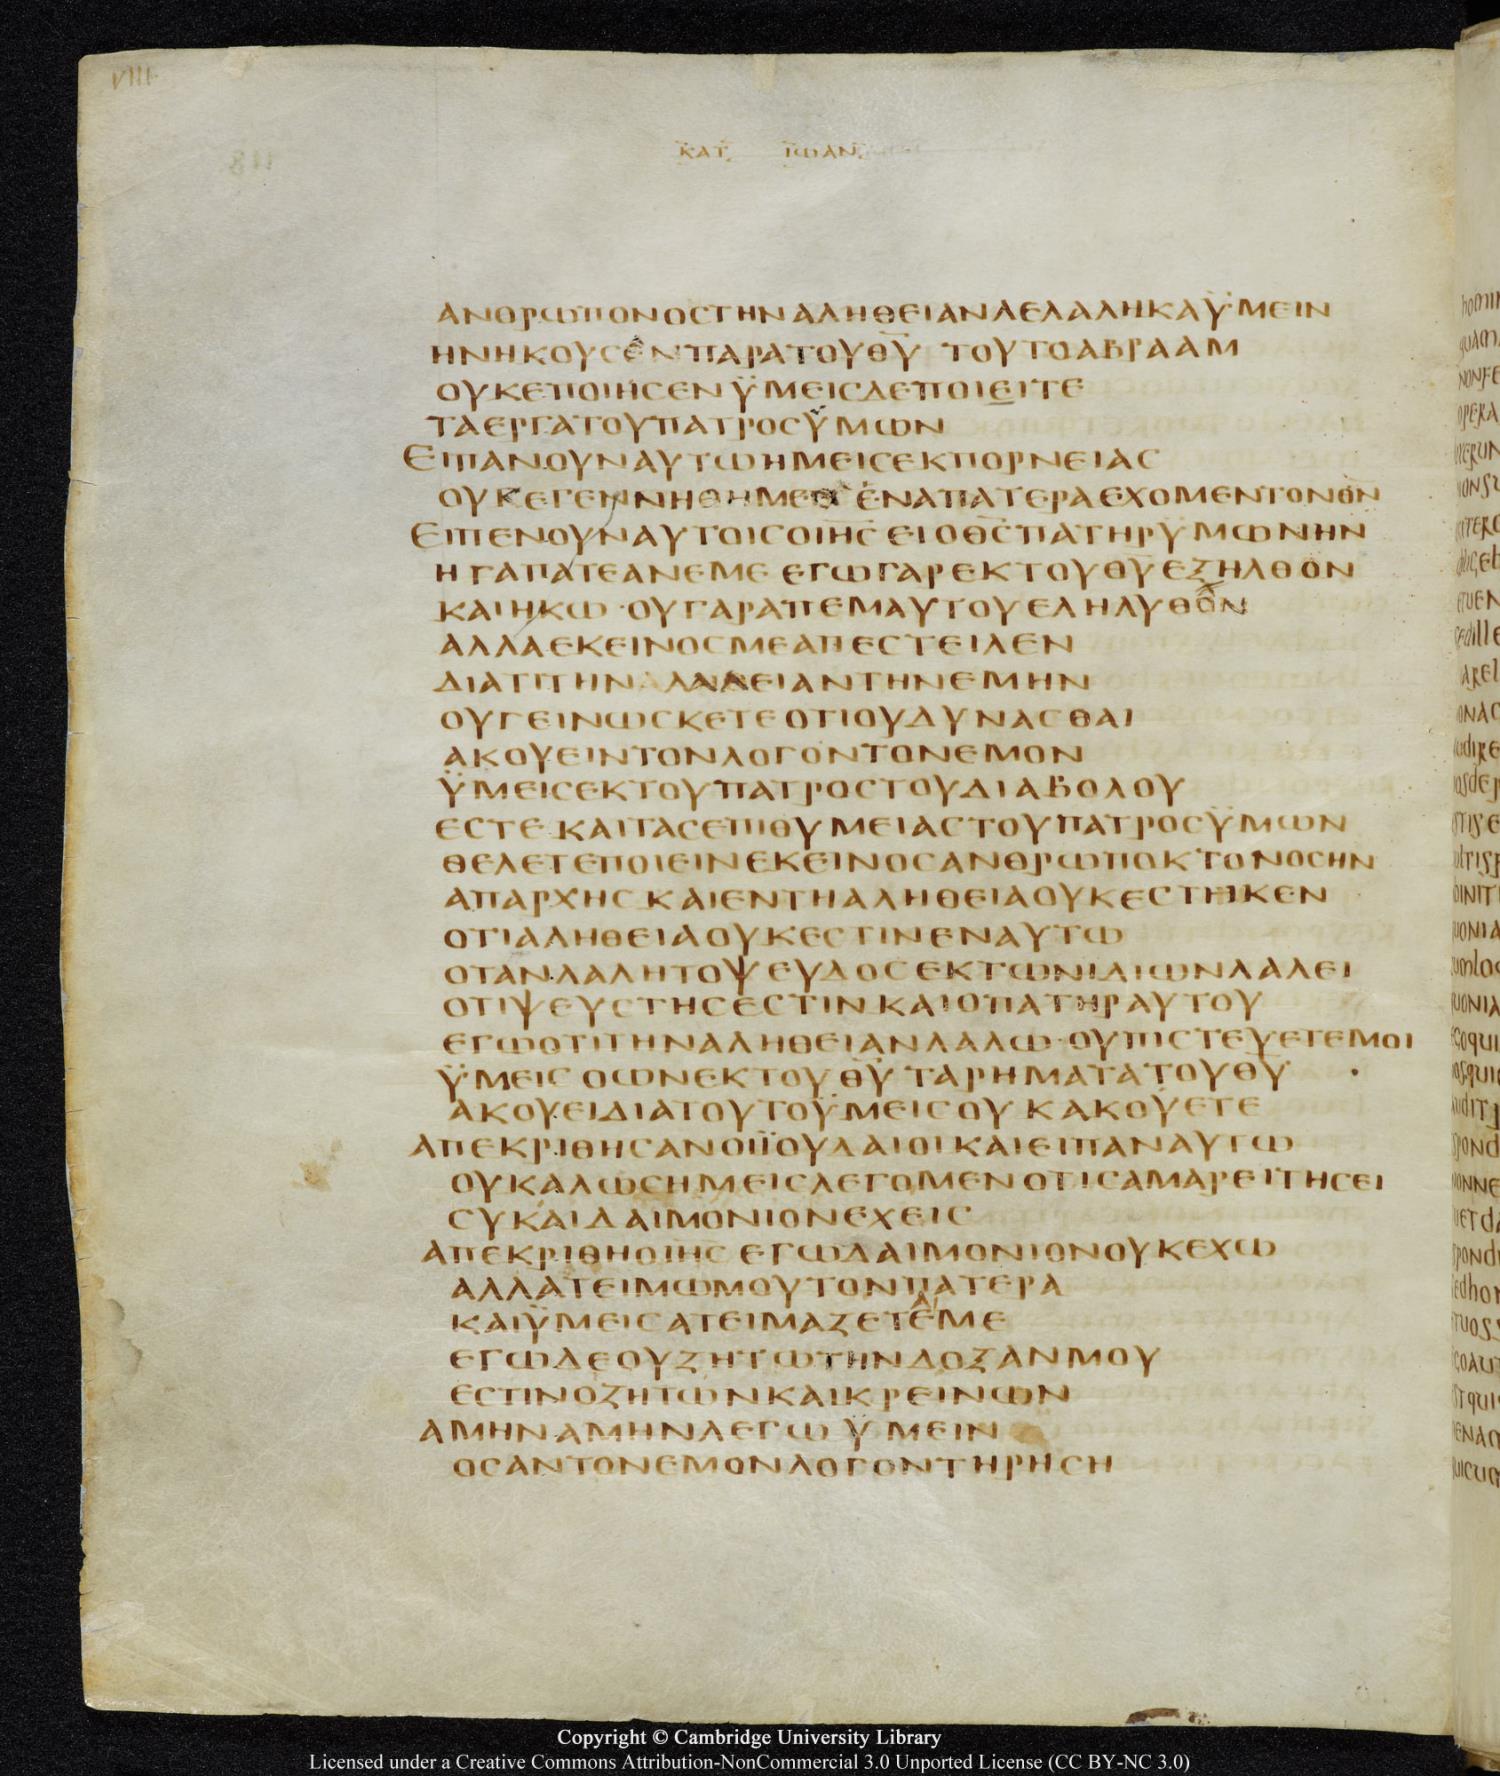 VIII
ΚΑΤ ΙΩΑΝ
ΑΝΘΡΩΠΟΝΟΣΤΗΝΑΛΗΘΕΙΑΝΛΕΛΑΛΗΚΑΫΜΕΙΝ
ΗΝΗΚΟΥΣΕΝΠΑΡΑΤΟΥΘ̅Υ̅ ΤΟΥΤΟΑΒΡΑΑΜ
ΟΥΚΕΠΟΙΗΣΕΝΫΜΕΙΣΔΕΠΟΙΕΙΤΕ
ΤΑΕΡΓΑΤΟΥΠΑΤΡΟΣΫΜΩΝ
ΕΙΠΑΝΟΥΝΑΥΤΩΗΜΕΙΣΕΚΠΟΡΝΕΙΑΣ
ΟΥΚΕΓΕΝΝΗΘΗΜΕΘΑ ΕΝΑΠΑΤΕΡΑΕΧΟΜΕΝΤΟΝΘ̅Ν̅
ΕΙΠΕΝΟΥΝΑΥΤΟΙΣΟΙΗ̅Σ̅ ΕΙΟΘ̅Σ̅ΠΑΤΗΡΫΜΩΝΗΝ
ΗΓΑΠΑΤΕΑΝΕΜΕ ΕΓΩΓΑΡΕΚΤΟΥΘ̅Υ̅ΕΞΗΛΘΟΝ
ΚΑΙΗΚΩ·ΟΥΓΑΡΑΠΕΜΑΥΤΟΥΕΛΗΛΥΘΟΝ
ΑΛΛΑΕΚΕΙΝΟΣΜΕΑΠΕΣΤΕΙΛΕΝ
ΔΙΑΤΙΤΗΝΑΛΗΘΕΙΑΝΤΗΝΕΜΗΝ
ΟΥΓΕΙΝΩΣΚΕΤΕΟΤΙΟΥΔΥΝΑΣΘΑΙ
ΑΚΟΥΕΙΝΤΟΝΛΟΓΟΝΤΟΝΕΜΟΝ
ΫΜΕΙΣΕΚΤΟΥΠΑΤΡΟΣΤΟΥΔΙΑΒΟΛΟΥ
ΕΣΤΕ·ΚΑΙΤΑΣΕΠΙΘΥΜΕΙΑΣΤΟΥΠΑΤΡΟΣΫΜΩΝ
ΘΕΛΕΤΕΠΟΙΕΙΝΕΚΕΙΝΟΣΑΝΘΡΩΠΟΚΤΟΝΟΣΗΝ
ΑΠΑΡΧΗΣΚΑΙΕΝΤΗΑΛΗΘΕΙΑΟΥΚΕΣΤΗΚΕΝ
ΟΤΙΑΛΗΘΕΙΑΟΥΚΕΣΤΙΝΕΝΑΥΤΩ
ΟΤΑΝΛΑΛΗΤΟΨΕΥΔΟΣΕΚΤΩΝΙΔΙΩΝΛΑΛΕΙ
ΟΤΙΨΕΥΣΤΗΣΕΣΤΙΝΚΑΙΟΠΑΤΗΡΑΥΤΟΥ
ΕΓΩΟΤΙΤΗΝΑΛΗΘΕΙΑΝΛΑΛΩ·ΟΥΠΙΣΤΕΥΕΤΕΜΟΙ
ΫΜΕΙΣ ΟΩΝΕΚΤΟΥΘ̅Υ̅ ΤΑΡΗΜΑΤΑΤΟΥΘ̅Υ̅
ΑΚΟΥΕΙΔΙΑΤΟΥΤΟΫΜΕΙΣΟΥΚΑΚΟΥΕΤΕ
ΑΠΕΚΡΙΘΗΣΑΝΟΙΪΟΥΔΑΙΟΙΚΑΙΕΙΠΑΝΑΥΤΩ
ΟΥΚΑΛΩΣΗΜΕΙΣΛΕΓΟΜΕΝΟΤΙΣΑΜΑΡΕΙΤΗΣΕΙ
ΣΥΚΑΙΔΑΙΜΟΝΙΟΝΕΧΕΙΣ
ΑΠΕΚΡΙΘΗΟΙΗ̅Σ̅ ΕΓΩΔΑΙΜΟΝΙΟΝΟΥΚΕΧΩ
ΑΛΛΑΤΕΙΜΩΜΟΥΤΟΝΠΑΤΕΡΑ
ΚΑΙΫΜΕΙΣΑΤΕΙΜΑΖΕΤΕΜΕ
ΕΓΩΔΕΟΥΖΗΤΩΤΗΝΔΟΞΑΝΜΟΥ
ΕΣΤΙΝΟΖΗΤΩΝΚΑΙΚΡΕΙΝΩΝ
ΑΜΗΝΑΜΗΝΛΕΓΩΫΜΕΙΝ
ΟΣΑΝΤΟΝΕΜΟΝΛΟΓΟΝΤΗΡΗΣΗ
Copyright © Cambridge University Library
Licensed under a Creative Commons Attribution-NonCommercial 3.0 Unported License (CC BY-NC 3.0)